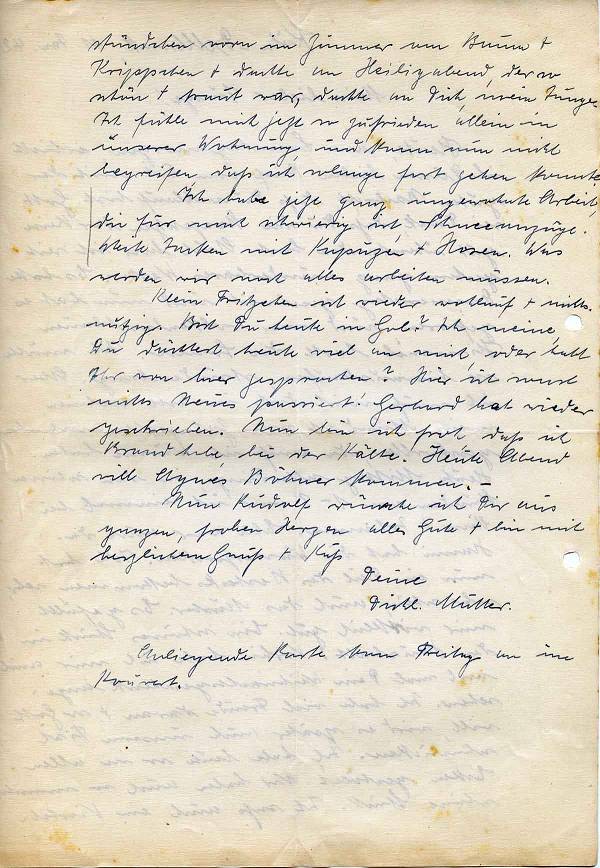 stündchen vorn im Zimmer am Baum +
Krippchen + dachte an Heiligabend, der so
schön + traut war, dachte an Dich, mein Junge.
Ich fühle mich jetzt so zufrieden allein in
unserer Wohnung und kann nun nicht
begreifen daß ich solange fort gehen konnte.
Ich habe jetzt ganz ungewohnte Arbeit,
die für mich schwierig ist, Schneeanzüge.
Weite Jacken mit Kapuzen + Hosen. Was
werden wir noch alles arbeiten müssen.
Klein Fritzchen ist wieder wohlauf + nichts-
nutzig. Bist Du heute in ? Ich meine,
Du dachtest heute viel an mich, oder habt
Ihr von hier gesprochen? Hier ist sonst
nichts Neues passiert! Gerhard hat wieder
geschrieben. Nun bin ich froh daß ich
Brand habe bei der Kälte. Heute Abend
will Agnes Böhner kommen. –
Nun Rudolf wünsche ich Dir aus
ganzem, frohen Herzen alles Gute + bin mit
herzlichem Gruß + Kuß
Deine
Dichl. Mutter.
Anliegende Karte kam Freitag an im
Kouvert.